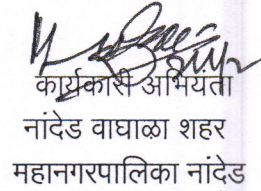 कार्यकारी अभियंता
नांदेड वाघाळा शहर
महानगरपालिका नांदेड